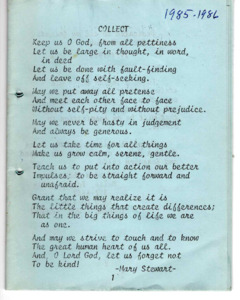 1985-1986
COLLECT
Keep us O God, from all pettiness
Let us be large in thought, in word,
in deed
Let us be done with fault-finding
And leave off self-seeking.
May we put away all pretense
And meet each other face to face
Without self-pity and without prejudice.
May we never be hasty in judgement
And always be generous.
Let us take time for all things
Make us grow calm, serene, gentle.
Teach us to put into action our better
Impulses; to be straight forward and
unafraid.
Grant that we may realize it is
The little things that create differences;
That in the big things of life we are
as one.
And may we strive to touch and to know
The great human heart of us all.
And, O Lord God, let us forget not
To be kind!
-Mary Stewart-
1